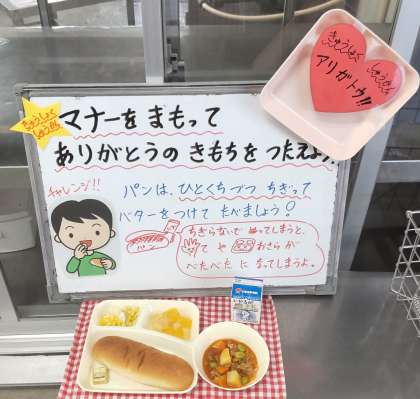 きゅうしょく
しゅうかん
アリガトウ!!
きゅうしょく
しゅうかん
マナーを まもって
ありがとうの きもちを つたえよう!
チャレンジ!!
パンは、ひとくちづつ ちぎって
バターをつけて たべましょう!
ちぎらないで ぬってしまうと、
てや おさらが
べたべたに なってしまうよ。
パン